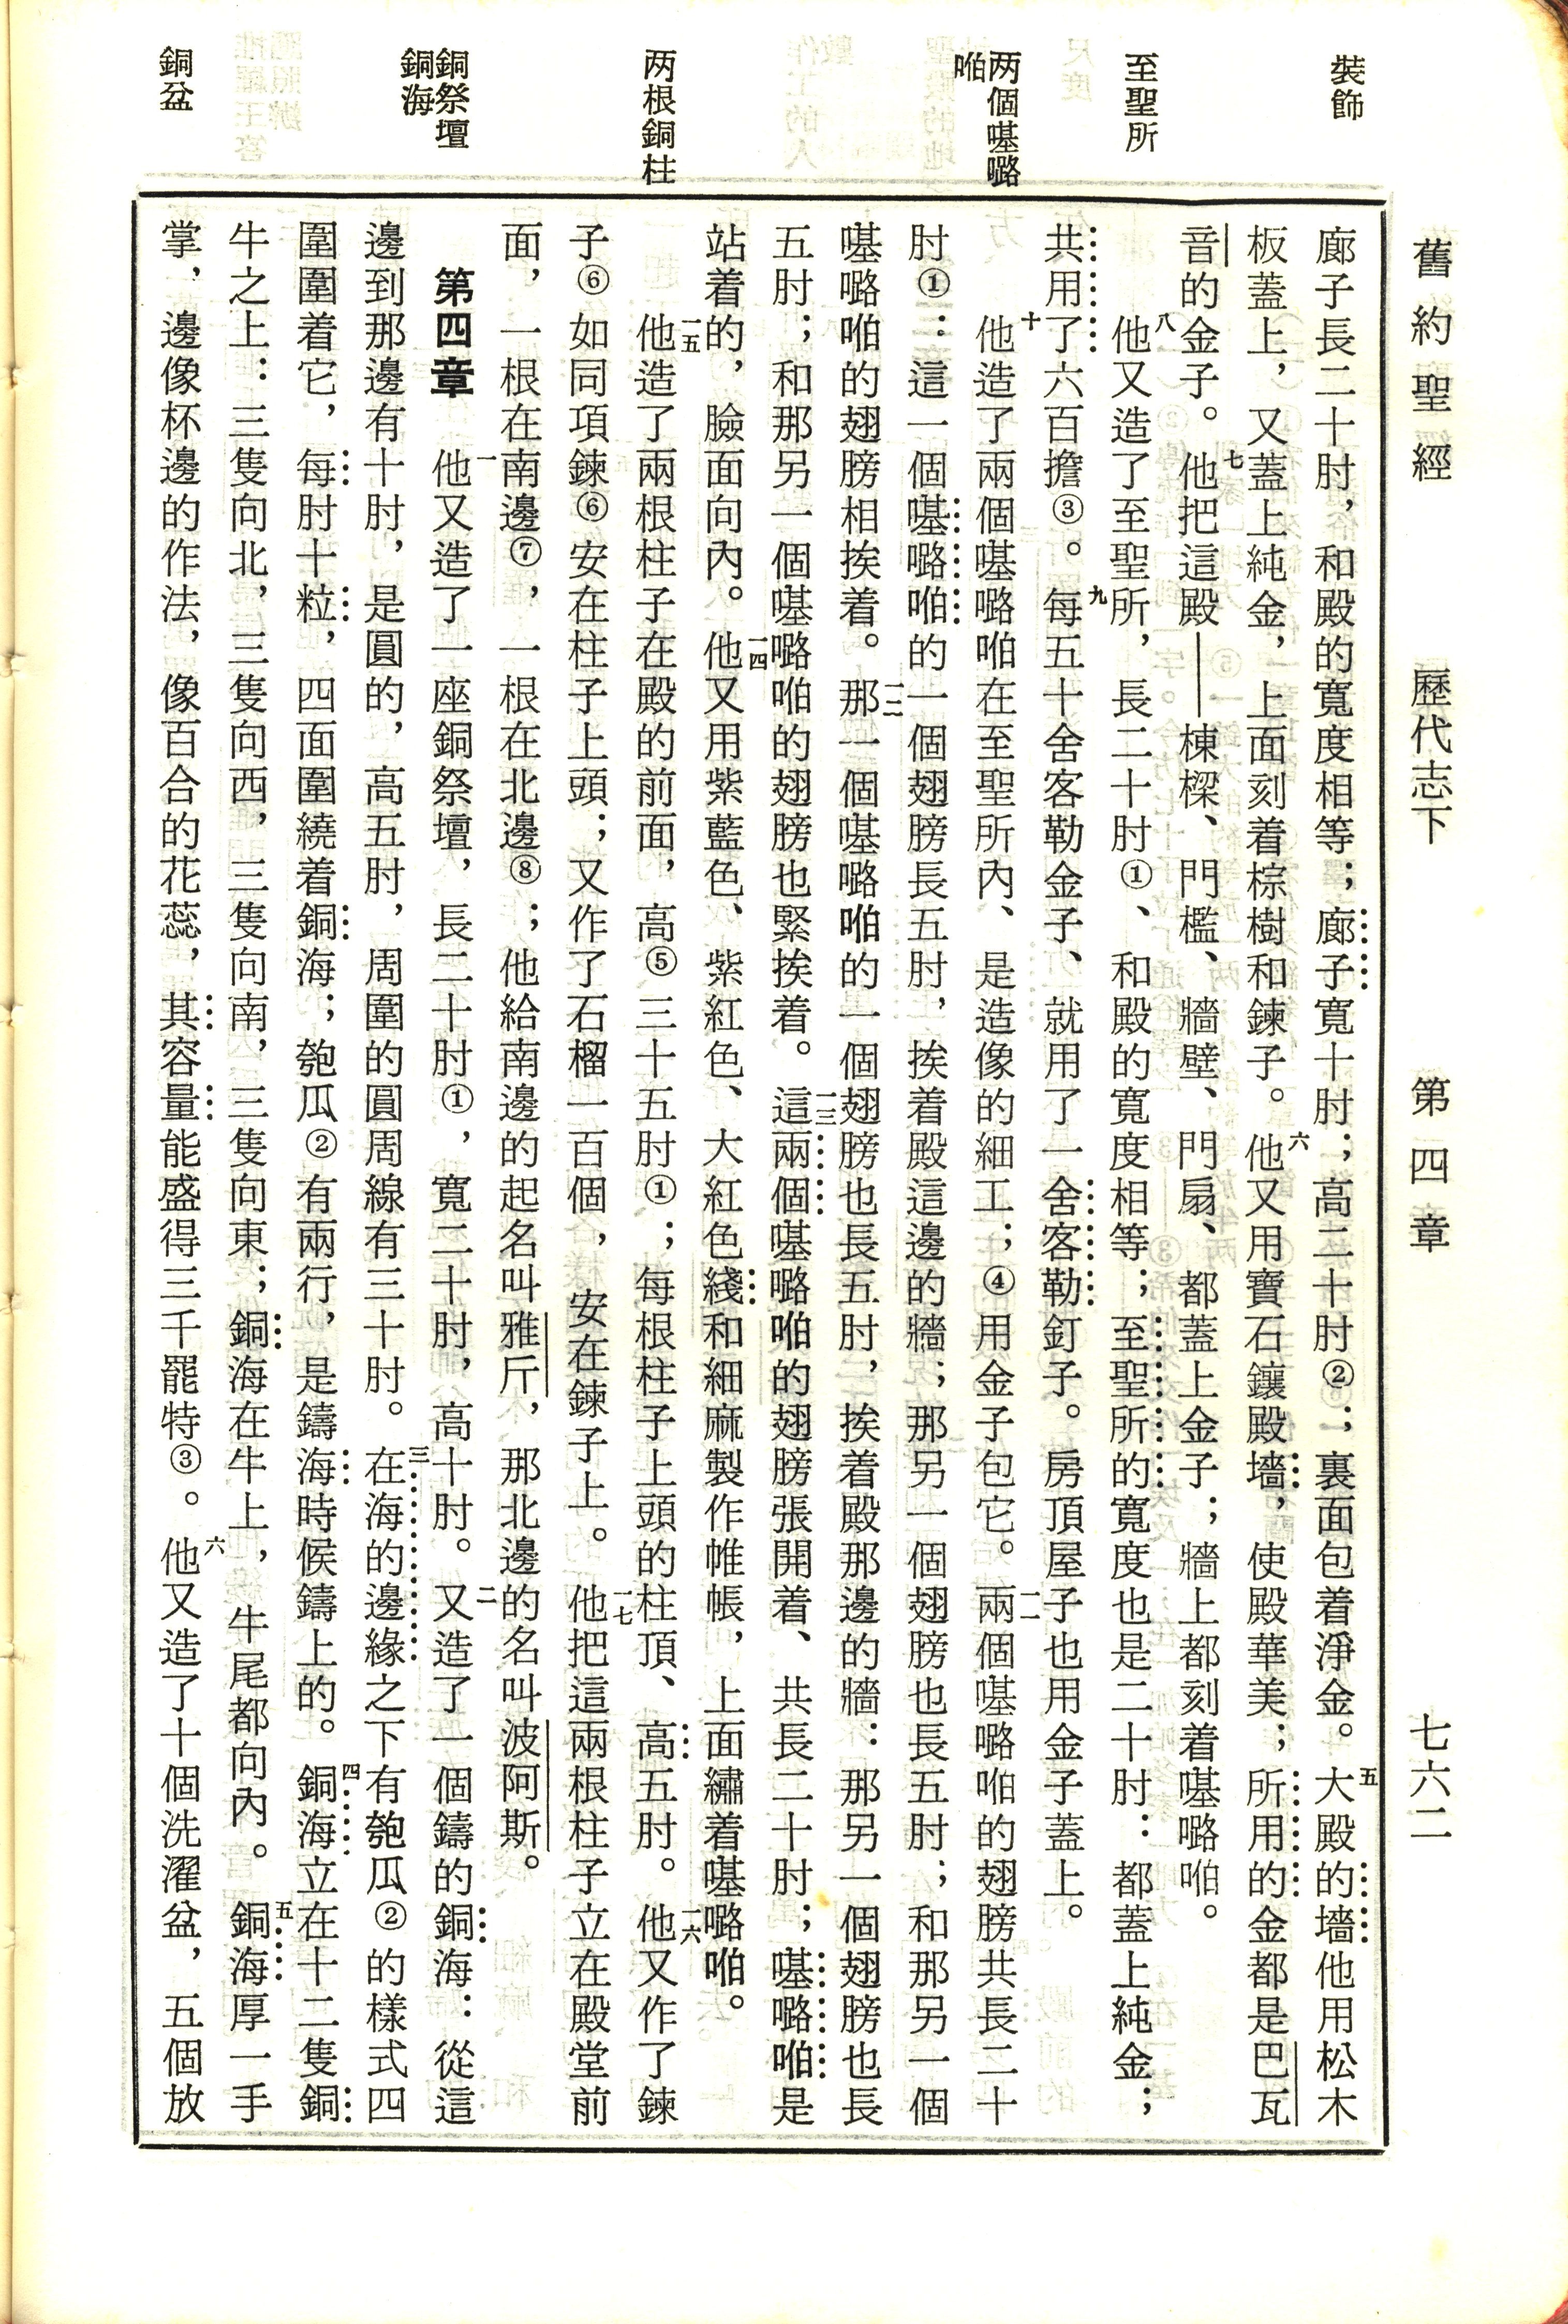 舊約聖經　歷代志下　第四章　七六二
裝飾
至聖所
两個𠼻𠺝
㖠
两根銅柱
銅祭壇
銅海
銅盆
廊子長二十肘，和殿的寬度相等；廊子寬十肘；高二十肘②；裏面包着淨金。五大殿的墻他用松木
板蓋上，又蓋上純金，上面刻着棕樹和鍊子。六他又用寶石鑲殿墻，使殿華美；所用的金都是巴瓦
音的金子。七他把這殿——棟樑、門檻、牆壁、門扇、都蓋上金子；牆上都刻着𠼻𠺝㖠。
八他又造了至聖所，長二十肘①、和殿的寬度相等；至聖所的寬度也是二十肘：都蓋上純金；
共用了六百擔③。九每五十舍客勒金子、就用了一舍客勒釘子。房頂屋子也用金子蓋上。
十他造了兩個𠼻𠺝㖠在至聖所內、是造像的細工；④用金子包它。一一兩個𠼻𠺝㖠的翅膀共長二十
肘①：這一個𠼻𠺝㖠的一個翅膀長五肘，挨着殿這邊的牆；那另一個翅膀也長五肘；和那另一個
𠼻𠺝㖠的翅膀相挨着。一二那一個𠼻𠺝㖠的一個翅膀也長五肘，挨着殿那邊的牆：那另一個翅膀也長
五肘；和那另一個𠼻𠺝㖠的翅膀也緊挨着。一三這兩個𠼻𠺝㖠的翅膀張開着、共長二十肘；𠼻𠺝㖠是
站着的，臉面向內。一四他又用紫藍色、紫紅色、大紅色綫和細麻製作帷帳，上面繡着𠼻𠺝㖠。
一五他造了兩根柱子在殿的前面，高⑤三十五肘①；每根柱子上頭的柱頂、高五肘。一六他又作了鍊
子⑥如同項鍊⑥安在柱子上頭；又作了石榴一百個，安在鍊子上。一七他把這兩根柱子立在殿堂前
面，一根在南邊⑦，一根在北邊⑧；他給南邊的起名叫雅斤，那北邊的名叫波阿斯。
第四章　一他又造了一座銅祭壇，長二十肘①，寬二十肘，高十肘。二又造了一個鑄的銅海：從這
邊到那邊有十肘，是圓的，高五肘，周圍的圓周線有三十肘。三在海的邊緣之下有匏瓜②的樣式四
圍圍着它，每肘十粒，四面圍繞着銅海；匏瓜②有兩行，是鑄海時候鑄上的。四銅海立在十二隻銅
牛之上：三隻向北，三隻向西，三隻向南，三隻向東；銅海在牛上，牛尾都向內。五銅海厚一手
掌，邊像杯邊的作法，像百合的花蕊，其容量能盛得三千罷特③。六他又造了十個洗濯盆，五個放